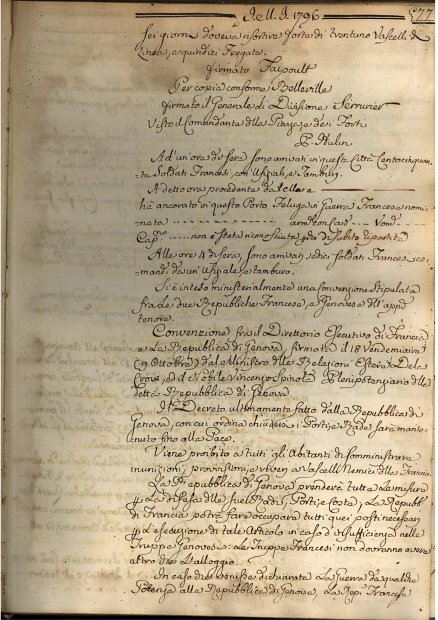 1796
577
sei giorni doveva ristrova forte di trentuno Vascelli di
Linea, e quindici Fregate.
firmato Faipoult
Per copia conforme Belleville
firmato il Generale di Divisione Serrurier
Visto il Comandante della Piazza, e dei Forti
P. Hulin
Ad un'ora di sera sono arrivati in questa Città Cento cinquan-
ta Soldati Francesi, con Ufiziali, e Tamburj.
A detto ora procedente da
hà ancorato in questo Porto Feluga in Guerra Francese nomi-
nata
Cap.no ..... non è stata riconosciuta di subito ripartita
Alle ore 4 di sera, sono arrivati sedici Soldati Francesi co-
mandati da un'Ufiziale, e tamburo.
Si è inteso ministerialmente una Convenzione stipulata
fra le due Repubbliche Francese, e Genovese dell'appiè
tenore.
Convenzione fra il Direttorio Esecutivo di Francia
e La Repubblica di Genova, firmata il 18 Vendemiaire
(9 Ottobre) dal Ministro delle Relazioni Estere Dela
Croix, ed il Nobile Vincenzo Spinola Plenipotenziario della
detta Repubblica di Genova
Il Decreto ultimamente fatto dalla Repubblica di
Genova, con cui ordina chiudere i Porti, e Rade sarà mante-
nuto fino alla Pace.
Viene proibito à tutti gli Abitanti di somministrare
munizioni, provvisioni, e viveri a Vascelli Nemici della Francia.
La Repubblica di Genova prenderà tutte Le misure
p La difesa delle sue Radi, Porti, e Coste; La Repubb.
di Francia potrà fare occupare tutti quei posti necessarj
p L'esecuzione di tale Articolo in caso d'insufficienza nelle
Truppe Genovesi. Le Truppe Francesi non dovranno avere
altro che L'alloggio.
In caso che venisse dichiarata La Guerra da qualche
Potenza alla Repubblica di Genova, La Rep. Francese